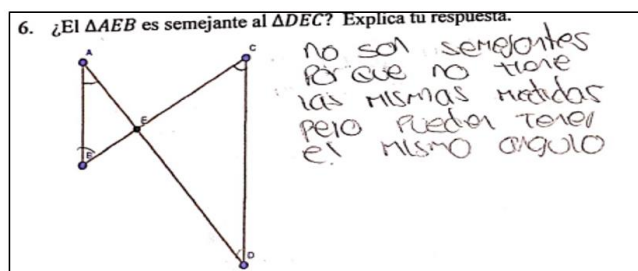 6. ¿El ΔAEB es semejante al ΔDEC? Explica tu respuesta.
no son semejantes
Por que no tiene
las mismas medidas
pero pueden tener
el mismo angulo
A
C
E
B
D